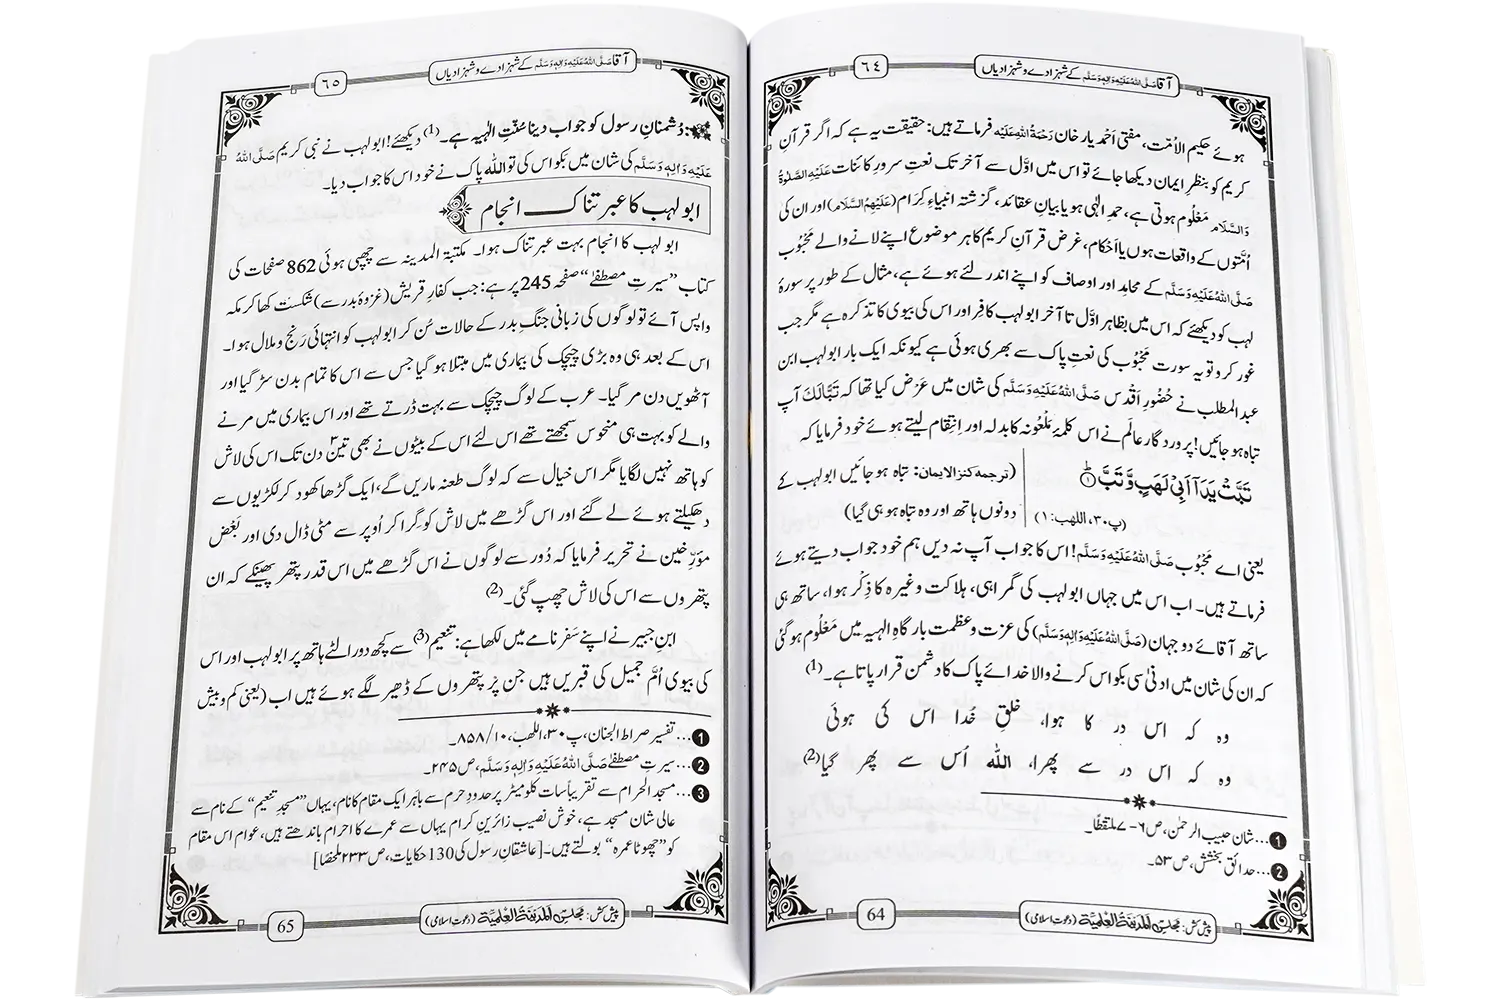 ٦٤
آقا صَلَّی اللّٰہُ عَلَیْہِ وَاٰلِہٖ وَسَلَّم کے شہزادے و شہزادیاں
ہوئے حکیم الاُمّت، مفتی احمد یار خان رَحْمَۃُ اللّٰہِ عَلَیْہ فرماتے ہیں: حقیقت یہ ہے کہ اگر قرآنِ
کریم کو بنظرِ ایمان دیکھا جائے تو اس میں اوّل سے آخر تک نعتِ سرورِ کائنات عَلَیْہِ الصَّلٰوۃُ
وَالسَّلَام معلُوم ہوتی ہے، حمدِ الٰہی ہو یا بیانِ عقائد، گزشتہ انبیاءِ کِرَام (عَلَیْہِمُ السَّلَام) اور ان کی
اُمّتوں کے واقعات ہوں یا احْکام، غرض قرآنِ کریم کا ہر موضوع اپنے لانے والے محْبُوب
صَلَّی اللّٰہُ عَلَیْہِ وَسَلَّم کے محامد اور اوصاف کو اپنے اندر لئے ہوئے ہے، مثال کے طور پر سورۂ
لہب کو دیکھئے کہ اس میں بظاہر اوّل تا آخر ابولہب کافِر اور اس کی بیوی کا تذکرہ ہے مگر جب
غور کرو تو یہ سورت محْبُوب کی نعتِ پاک سے بھری ہوئی ہے کیونکہ ایک بار ابولہب ابن
عبد المطلب نے حُضُورِ اقْدس صَلَّی اللّٰہُ عَلَیْہِ وَسَلَّم کی شان میں عَرْض کیا تھا کہ تَبًّا لَکَ آپ
تباہ ہو جائیں! پروردگارِ عالَم نے اس کلمۂ مَلْعُونہ کا بدلہ اور اِنتِقام لیتے ہوئے خود فرمایا کہ
تَبَّتْ یَدَاۤ اَبِیْ لَهَبٍ وَّ تَبَّؕ(۱)
(پ۳۰، اللھب: ۱)
(ترجمہ کنز الایمان: تباہ ہو جائیں ابولہب کے
دونوں ہاتھ اور وہ تباہ ہو ہی گیا)
یعنی اے محْبُوب صَلَّی اللّٰہُ عَلَیْہِ وَسَلَّم! اس کا جواب آپ نہ دیں ہم خود جواب دیتے ہوئے
فرماتے ہیں۔ اب اس میں جہاں ابولہب کی گمراہی، ہلاکت وغیرہ کا ذِکْر ہوا، ساتھ ہی
ساتھ آقائے دو جہان (صَلَّی اللّٰہُ عَلَیْہِ وَاٰلِہٖ وَسَلَّم) کی عزت و عظمت بارگاہِ الٰہیہ میں معْلُوم ہو گئی
کہ ان کی شان میں ادنیٰ سی بکواس کرنے والا خدائے پاک کا دشمن قرار پاتا ہے۔ (1)
وہ کہ اس در کا ہوا، خلقِ خُدا اس کی ہوئی
وہ کہ اس در سے پھرا، اللّٰہ اُس سے پھر گیا (2)
1 ... شان حبیب الرحمٰن، ص۶-۷ ملتقطاً۔
2 ... حدائق بخشش، ص۵۳۔
64
پیش کش: مجلس المدینۃ العلمیۃ (دعوت اسلامی)
٦٥
آقا صَلَّی اللّٰہُ عَلَیْہِ وَاٰلِہٖ وَسَلَّم کے شہزادے و شہزادیاں
دُشمنانِ رسول کو جواب دینا سُنّتِ الٰہیہ ہے۔ (1) دیکھئے! ابولہب نے نبی کریم صَلَّی اللّٰہُ
عَلَیْہِ وَاٰلِہٖ وَسَلَّم کی شان میں بکواس کی تو اللّٰہ پاک نے خود اس کا جواب دیا۔
ابولہب کا عبرتناک انجام
ابولہب کا انجام بہت عبرتناک ہوا۔ مکتبۃ المدینہ سے چھپی ہوئی 862 صفحات کی
کتاب ”سیرتِ مصطفےٰ“ صفحہ 245 پر ہے: جب کفارِ قریش (غزوۂ بدر سے) شکست کھا کر مکہ
واپس آئے تو لوگوں کی زبانی جنگِ بدر کے حالات سُن کر ابولہب کو انتہائی رَنج و ملال ہوا۔
اس کے بعد ہی وہ بڑی چیچک کی بیماری میں مبتلا ہو گیا جس سے اس کا تمام بدن سڑ گیا اور
آٹھویں دن مر گیا۔ عرب کے لوگ چیچک سے بہت ڈرتے تھے اور اس بیماری میں مرنے
والے کو بہت ہی منحوس سمجھتے تھے اس لئے اس کے بیٹوں نے بھی تین دن تک اس کی لاش
کو ہاتھ نہیں لگایا مگر اس خیال سے کہ لوگ طعنہ ماریں گے، ایک گڑھا کھود کر لکڑیوں سے
دھکیلتے ہوئے لے گئے اور اس گڑھے میں لاش کو گِرا کر اُوپر سے مٹی ڈال دی اور بَعْض
مؤرّخین نے تحریر فرمایا کہ دُور سے لوگوں نے اس گڑھے میں اس قدر پتھر پھینکے کہ ان
پتھروں سے اس کی لاش چھپ گئی۔ (2)
ابنِ جبیر نے اپنے سَفر نامے میں لکھا ہے: تنعیم (3) سے کچھ دور الٹے ہاتھ پر ابولہب اور اس
کی بیوی اُمِّ جمیل کی قبریں ہیں جن پر پتھروں کے ڈھیر لگے ہوئے ہیں اب (یعنی کم و بیش
1 ... تفسیر صراط الجنان، پ۳۰، اللھب، ۱۰/۸۵۸۔
2 ... سیرتِ مصطفےٰ صَلَّی اللّٰہُ عَلَیْہِ وَاٰلِہٖ وَسَلَّم، ص۲۴۵۔
3 ... مسجد الحرام سے تقریباً سات کلومیٹر پر حدودِ حرم سے باہر ایک مقام کا نام، یہاں ”مسجدِ تنعیم“ کے نام سے
عالی شان مسجد ہے، خوش نصیب زائرینِ کرام یہاں سے عمرے کا احرام باندھتے ہیں، عوام اس مقام
کو ”چھوٹا عمرہ“ بولتے ہیں۔ [عاشقانِ رسول کی 130 حکایات، ص۲۳۳ ملخصًا]
65
پیش کش: مجلس المدینۃ العلمیۃ (دعوت اسلامی)